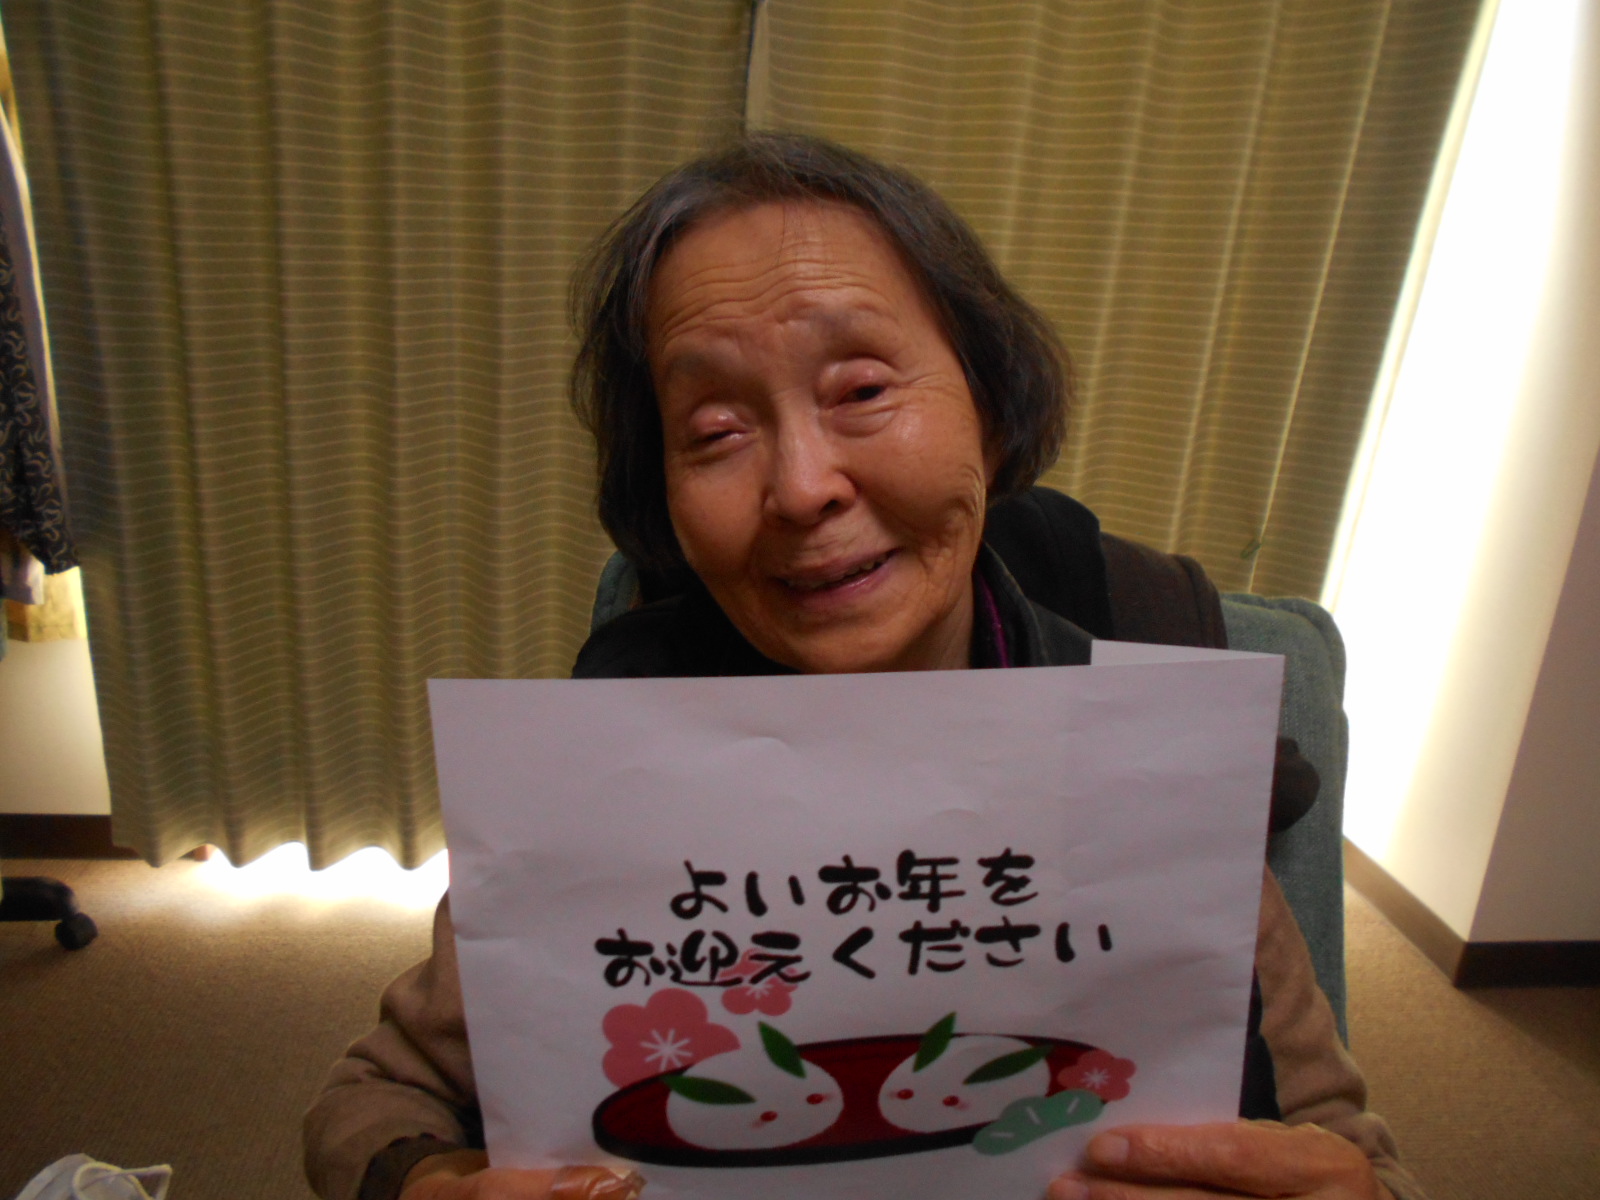 よいお年を
お迎えください